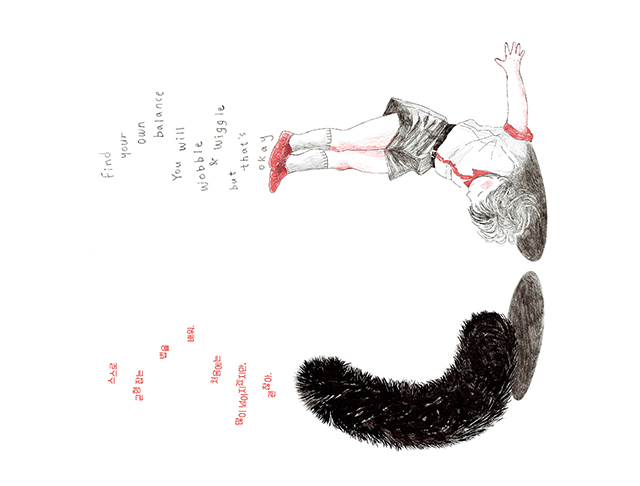 Find
your
own
balance
You will
wobble
& wiggle
but
that's
okay
스스로
균형 잡는
법을
배워.
처음에는
많이 넘어지겠지만,
괜찮아.